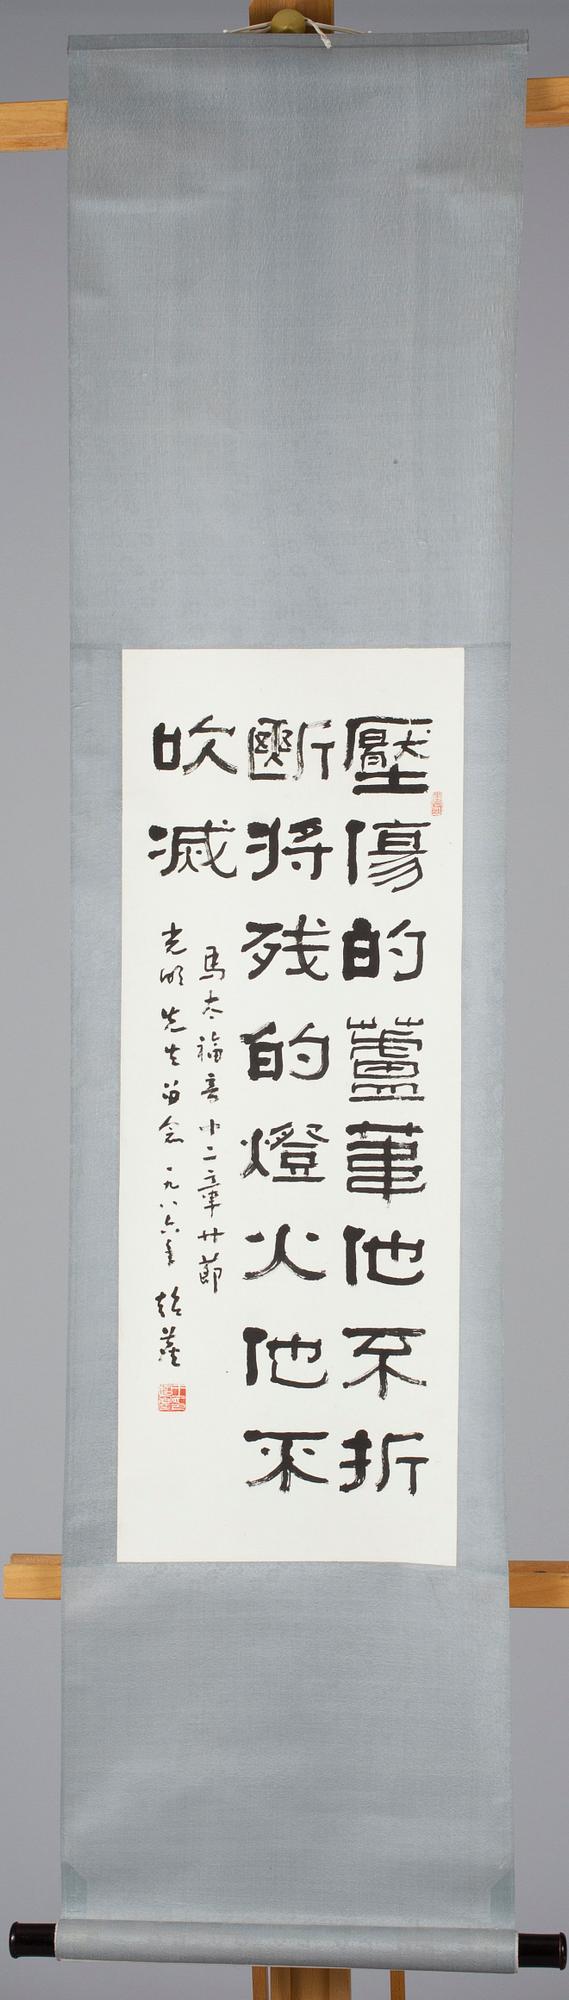 壓傷的蘆葦他不折
斷將残的燈火他不
吹滅
馬太福音十二章廿節
光明先生留念 一九八六年